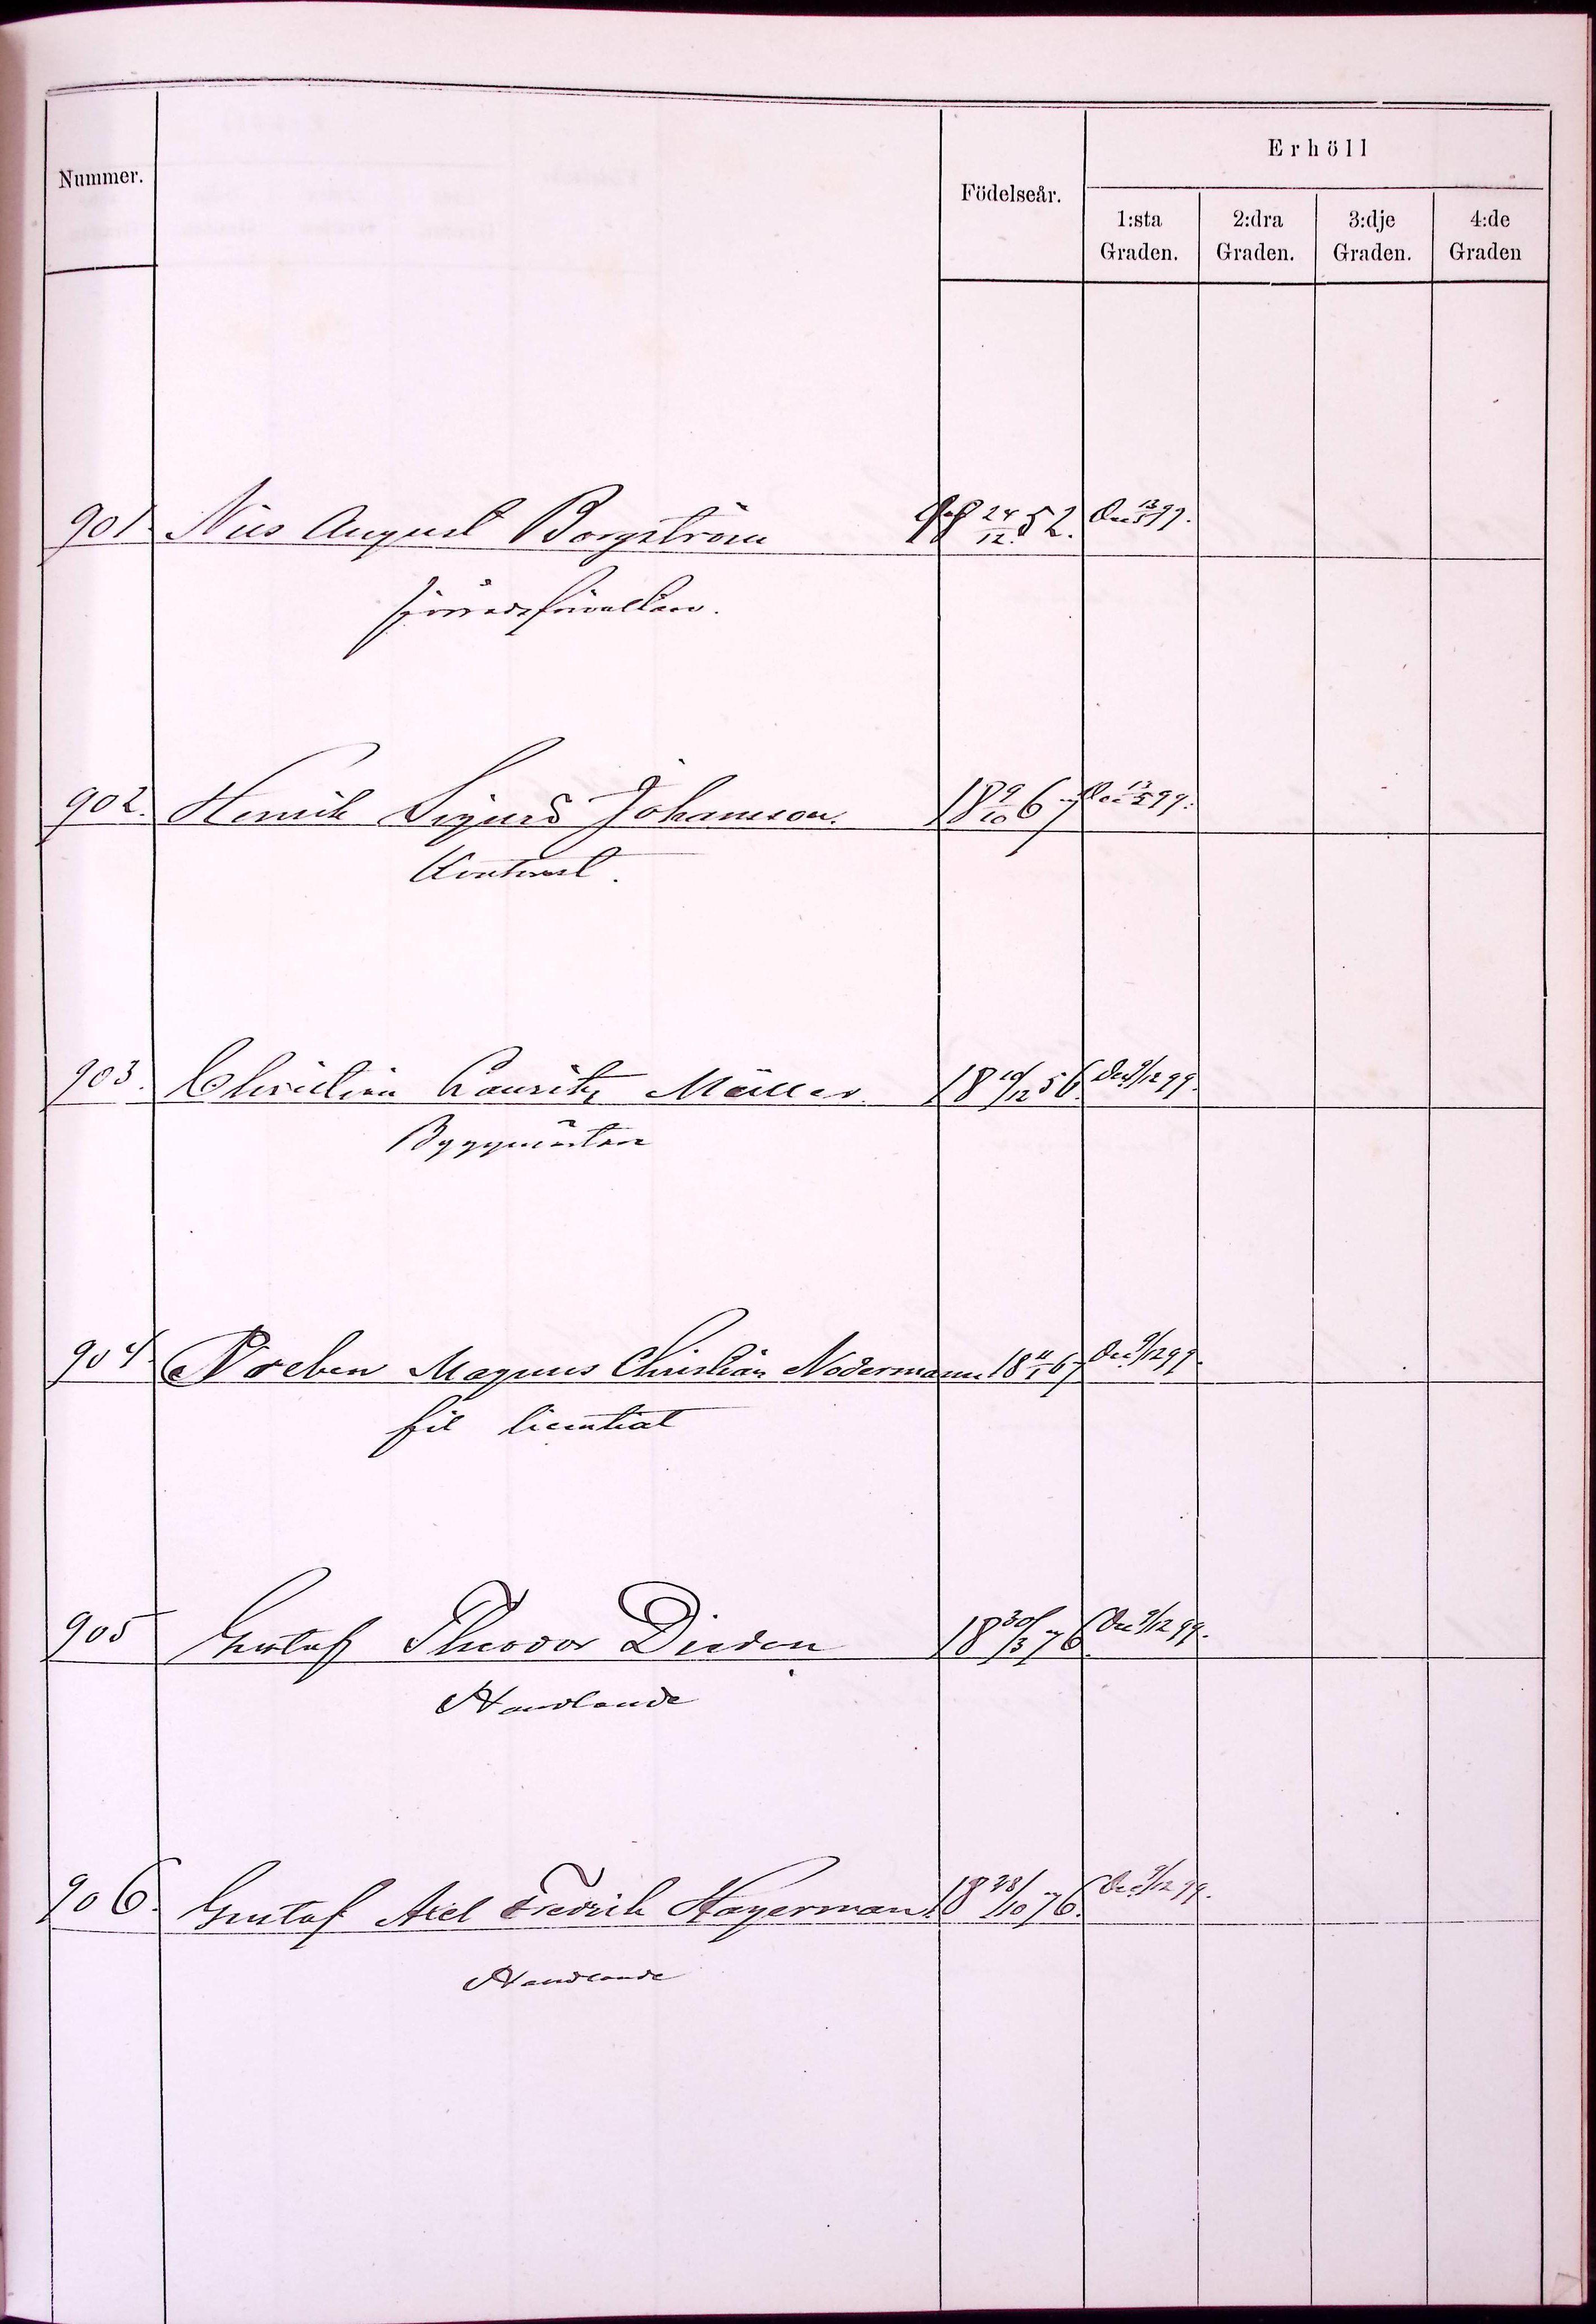 Nummer.
Födelseår.
Erhöll
1:sta Graden.
2:dra Graden.
3:dje Graden.
4:de Graden
901. Nils August Borgström 18 24/12 52. Den 13/5 99.
902. Henrik Sigurd Johansson. 18 9/10 67 Den 13/5 99.
Kontorist.
903. Christian Lauritz Müller. 18 10/12 56. Den 9/12 99.
Byggmästare
904. Preben Magnus Christian Nodermann 18 11/1 67 Den 9/12 99.
fil licentiat
905 Gustaf Theodor Dieden 18 30/3 76. Den 9/12 99.
Handlande
906. Gustaf Axel Fredrik Hagerman. 18 28/10 76. Den 9/12 99.
Handlande